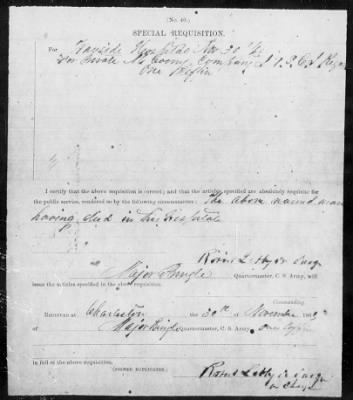 (No. 40.)
SPECIAL REQUISITION.
For Wayside Hospital Nov 30
for Private Company I 1 S.C.
One Coffin
I certify that the above requisition is correct; and that the articles specified are absolutely requisite for
the public service, rendered so by the following circumstances: The above named man
having died in this Hospital
Surgn
Major Pringle Quartermaster, C. S. Army, will
issue the articles specified in the above requisition.
Commanding.
RECEIVED at Charleston the 30th of November 186
of Major Pringle Quartermaster, C. S. Army, one Coffin
in full of the above requisition.
(SIGNED DUPLICATES.)
Surgn
in charge